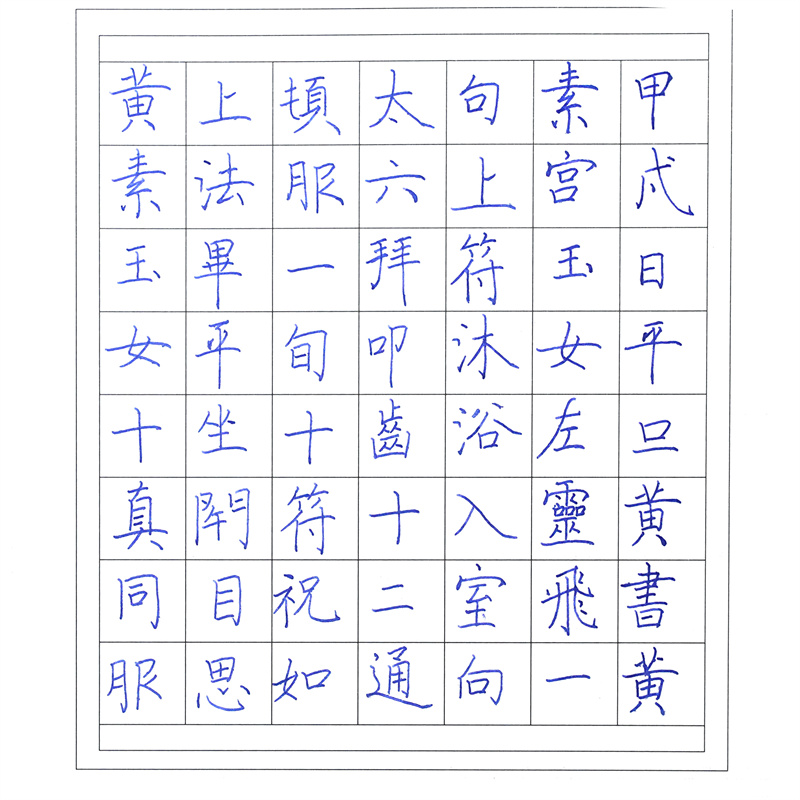 甲戌日平旦黄書黄
素宫玉女左靈飛一
句上符沐浴入室向
太六拜叩齒十二通
頓服一旬十符祝如
上法畢平坐閇目思
黄素玉女十真同服